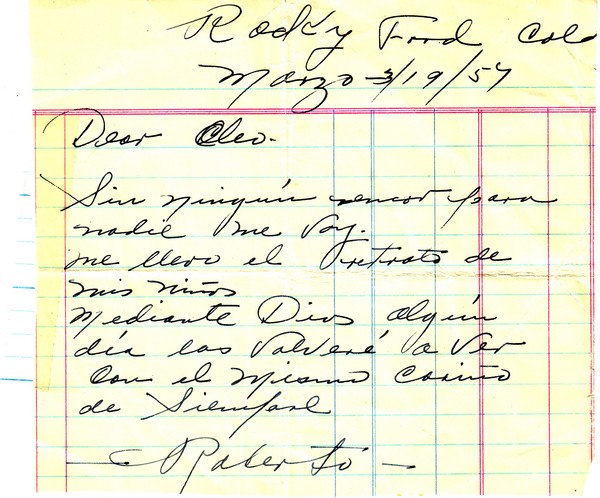 Rocky Ford Colo
Marzo 3/19/57
Dear Cleo.
Sin ningún rencor para
nadie me voy.
me llevo el retrato de
mis niños
Mediante Dios algún
día los volveré a ver
con el mismo cariño
de siempre
Roberto